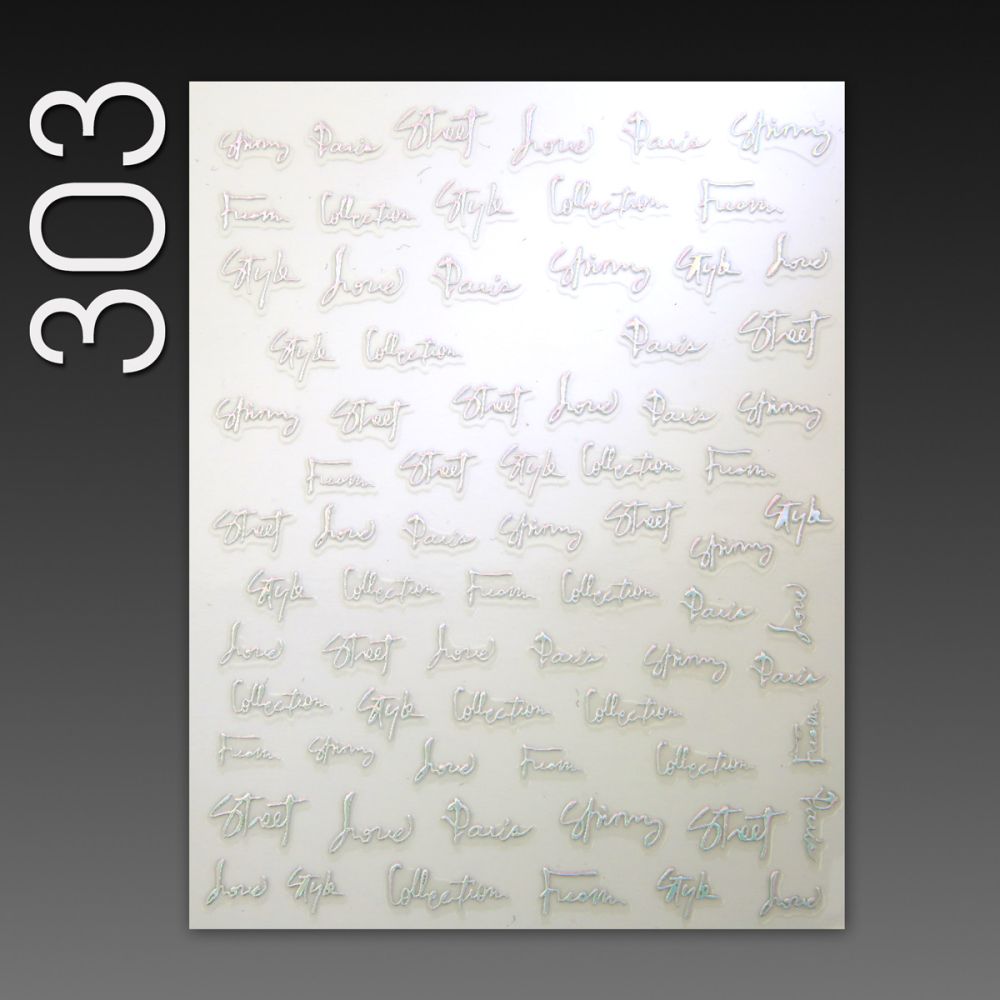 303
Spinny Paris Street Love Paris Spinny
From Collection Style Collection From
Style Love Paris Spinny Style Love
Style Collection Paris Street
Spinny Street Street Love Paris Spinny
From Street Style Collection From
Street Love Paris Spinny Street Spinny Style
Style Collection From Collection Paris Love
Love Street Love Paris Spinny Paris
Collection Style Collection Collection From
From Spinny Love From Collection
Street Love Paris Spinny Street Paris
Love Style Collection From Style Love